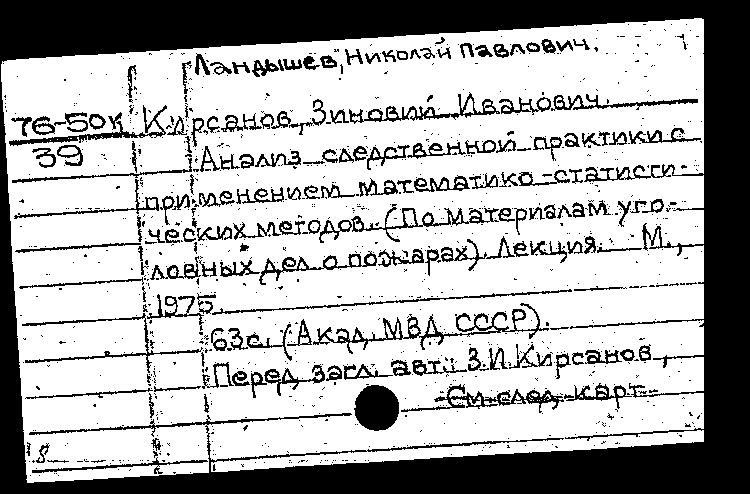 Ландышев, Николай Павлович.
76-50к Кирсанов, Зиновий Иванович.
39 Анализ следственной практики с
применением математико-статисти-
ческих методов. (По материалам уго-
ловных дел о пожарах). Лекция. М.,
1975.
63с. (Акад. МВД СССР).
Перед загл. авт.: З.И.Кирсанов,
См. след. карт.
8